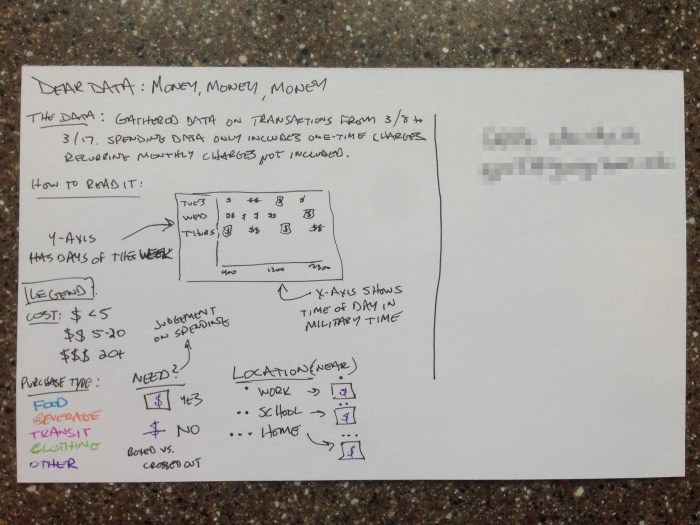 DEAR DATA: MONEY, MONEY, MONEY
THE DATA: GATHERED DATA ON TRANSACTIONS FROM 3/8 to
3/17. SPENDING DATA ONLY INCLUDES ONE-TIME CHARGES
RECURRING MONTHLY CHARGES NOT INCLUDED.
HOW TO READ IT:
TUES $ $$ $ $
WED $$ $ $ $$ $
THURS $ $$ $ $$
1200
Y-AXIS
HAS DAYS OF THE WEEK
X-AXIS SHOWS
TIME OF DAY IN
MILITARY TIME
LEGEND:
COST: $ <5
$$ 5-20
$$$ 20+
JUDGEMENT
ON SPENDING
PURCHASE TYPE:
FOOD
BEVERAGE
TRANSIT
CLOTHING
OTHER
NEED?
$ YES
$ NO
BOXED VS.
CROSSED OUT
LOCATION (NEAR)
• WORK → $
•• SCHOOL → $
••• HOME → $